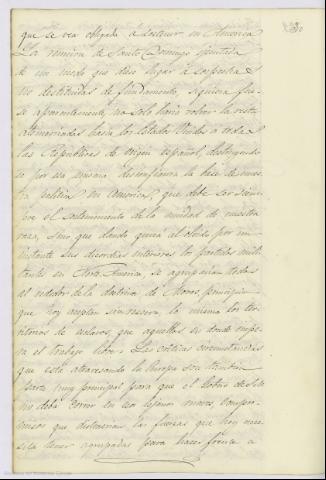 que se vea obligada a sostener en America
La reunion de Santo Domingo efectuada
de un modo que diese lugar a sospechas
no destituidas de fundamento, siquiera fue-
se aparentemente, no solo haria volver la vista
atemorizadas hacia los Estados Unidos a todas
las Republicas de origen español, destruyendo
se por esa misma desconfianza la base de nues-
tra politica en America, que debe ser siem-
pre el sostenimiento de la unidad de nuestra
raza, sino que dando quizá al olvido por un
instante sus discordias interiores los partidos mili-
tantes en Norte America, se agruparian todos
al rededor de la doctrina de Monroe, principio
que hoy aceptan sin reserva, lo mismo los ter-
ritorios de esclavos, que aquellos en donde impe-
ra el trabajo libre. Las criticas circunstancias
que está atravesando la Europa son tambien
parte muy principal para que el Gobierno de S.M.
no deba correr en tan lejanos mares compro-
misos que distraerian las fuerzas que hoy nece-
sita tener agrupadas para hacer frente a